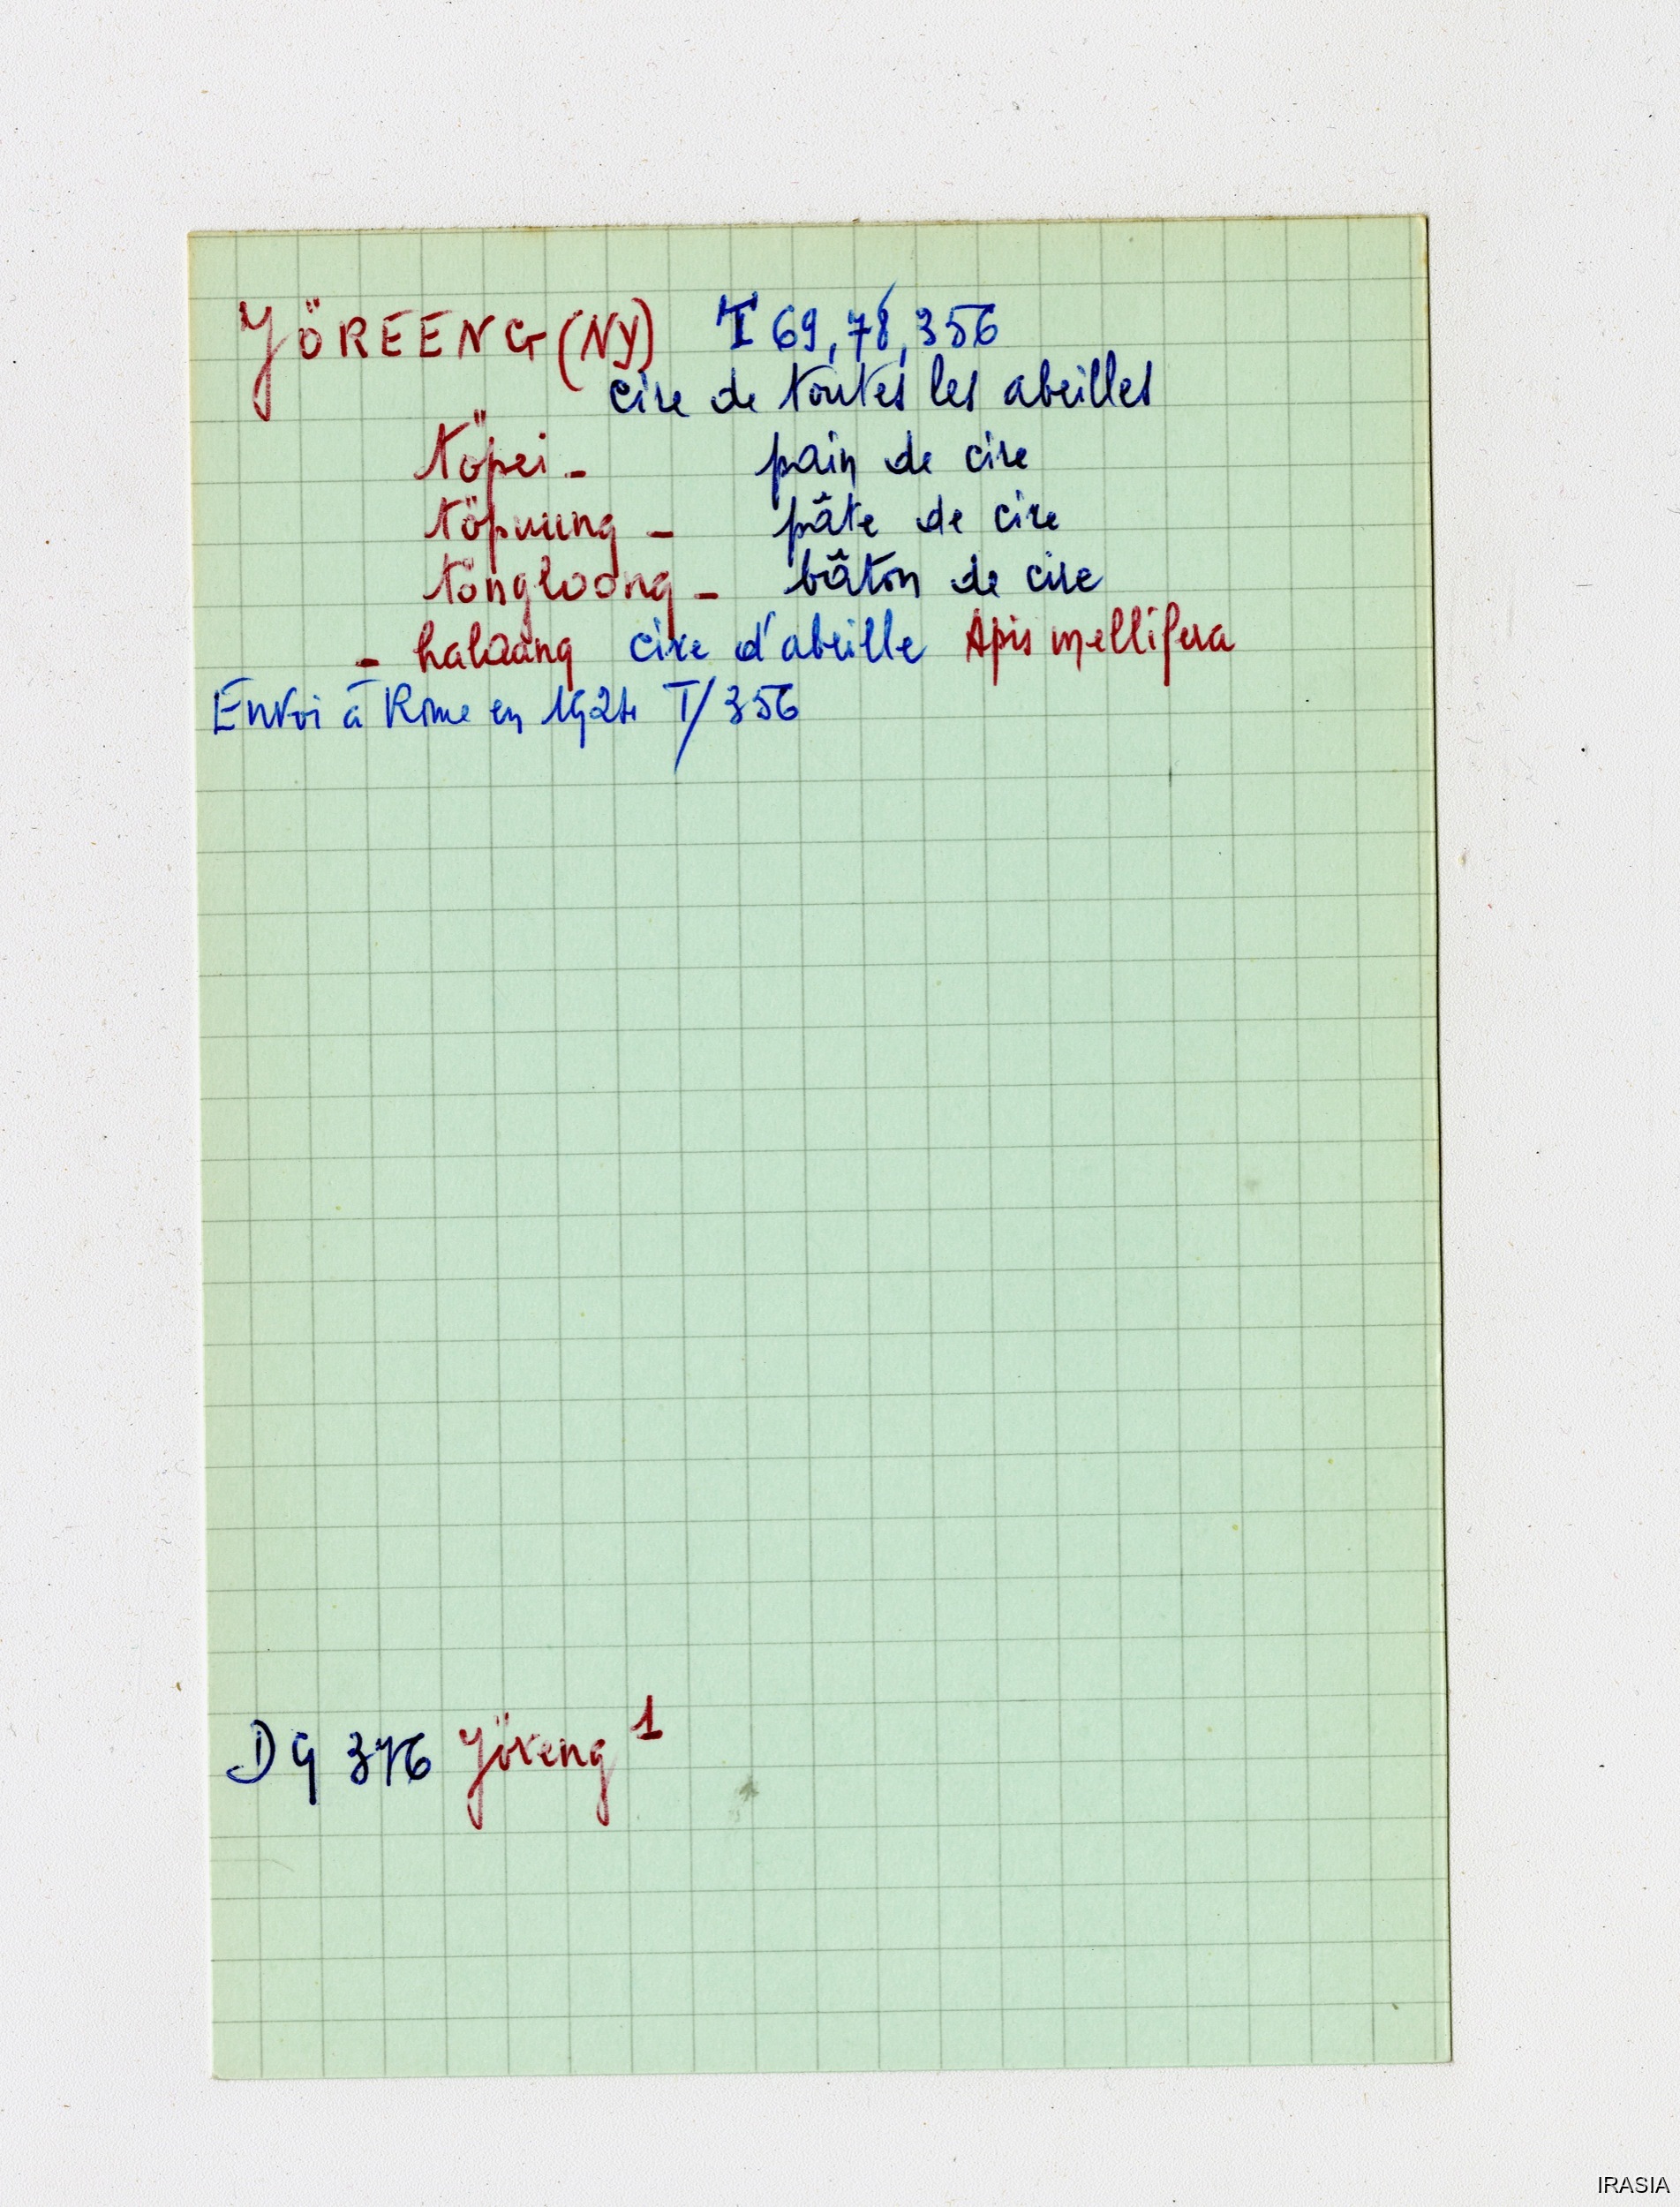 YÖREENG (NY) T 69, 78, 356
cire de toutes les abeilles
töpei - pain de cire
töpuung - pâte de cire
töngloong - bâton de cire
- halaang cire d'abeille Apis mellifera
Envoi à Rome en 1924 T/356
DG 376 Yöreng 1
IRASIA